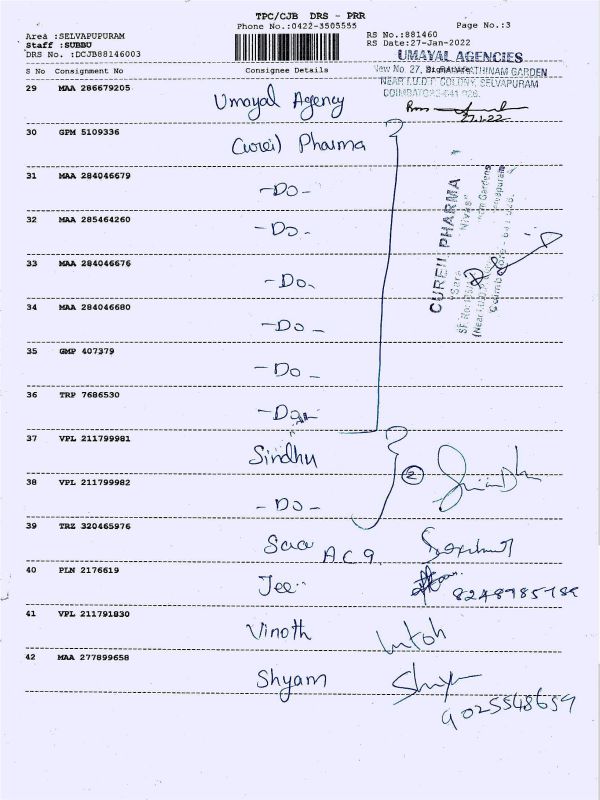 TPC/CJB DRS - PRR
Phone No.:0422-3505555
Page No.:3
Area :SELVAPUPURAM
Staff :SUBBU
DRS No. :DCJB88146003
RS No.:881460
RS Date:27-Jan-2022
UMAYAL AGENCIES
New No. 27, GARDEN
NEAR I.U.D.P. COLONY, SELVAPURAM
S No Consignment No Consignee Details Signature
27.1.22
29 MAA 286679205 Umayal Agency
30 GPM 5109336 Cureil Pharma
31 MAA 284046679 -Do-
32 MAA 285464260 -Do-
33 MAA 284046676 -Do-
34 MAA 284046680 -Do-
35 GMP 407379 -Do-
36 TRP 7686530
CUREIL PHARMA
37 VPL 211799981 Sindhu
2
38 VPL 211799982 -Do-
39 TRZ 320465976
40 PLN 2176619 Jee
41 VPL 211791830 Vinoth
42 MAA 277899658 Shyam
9025548659